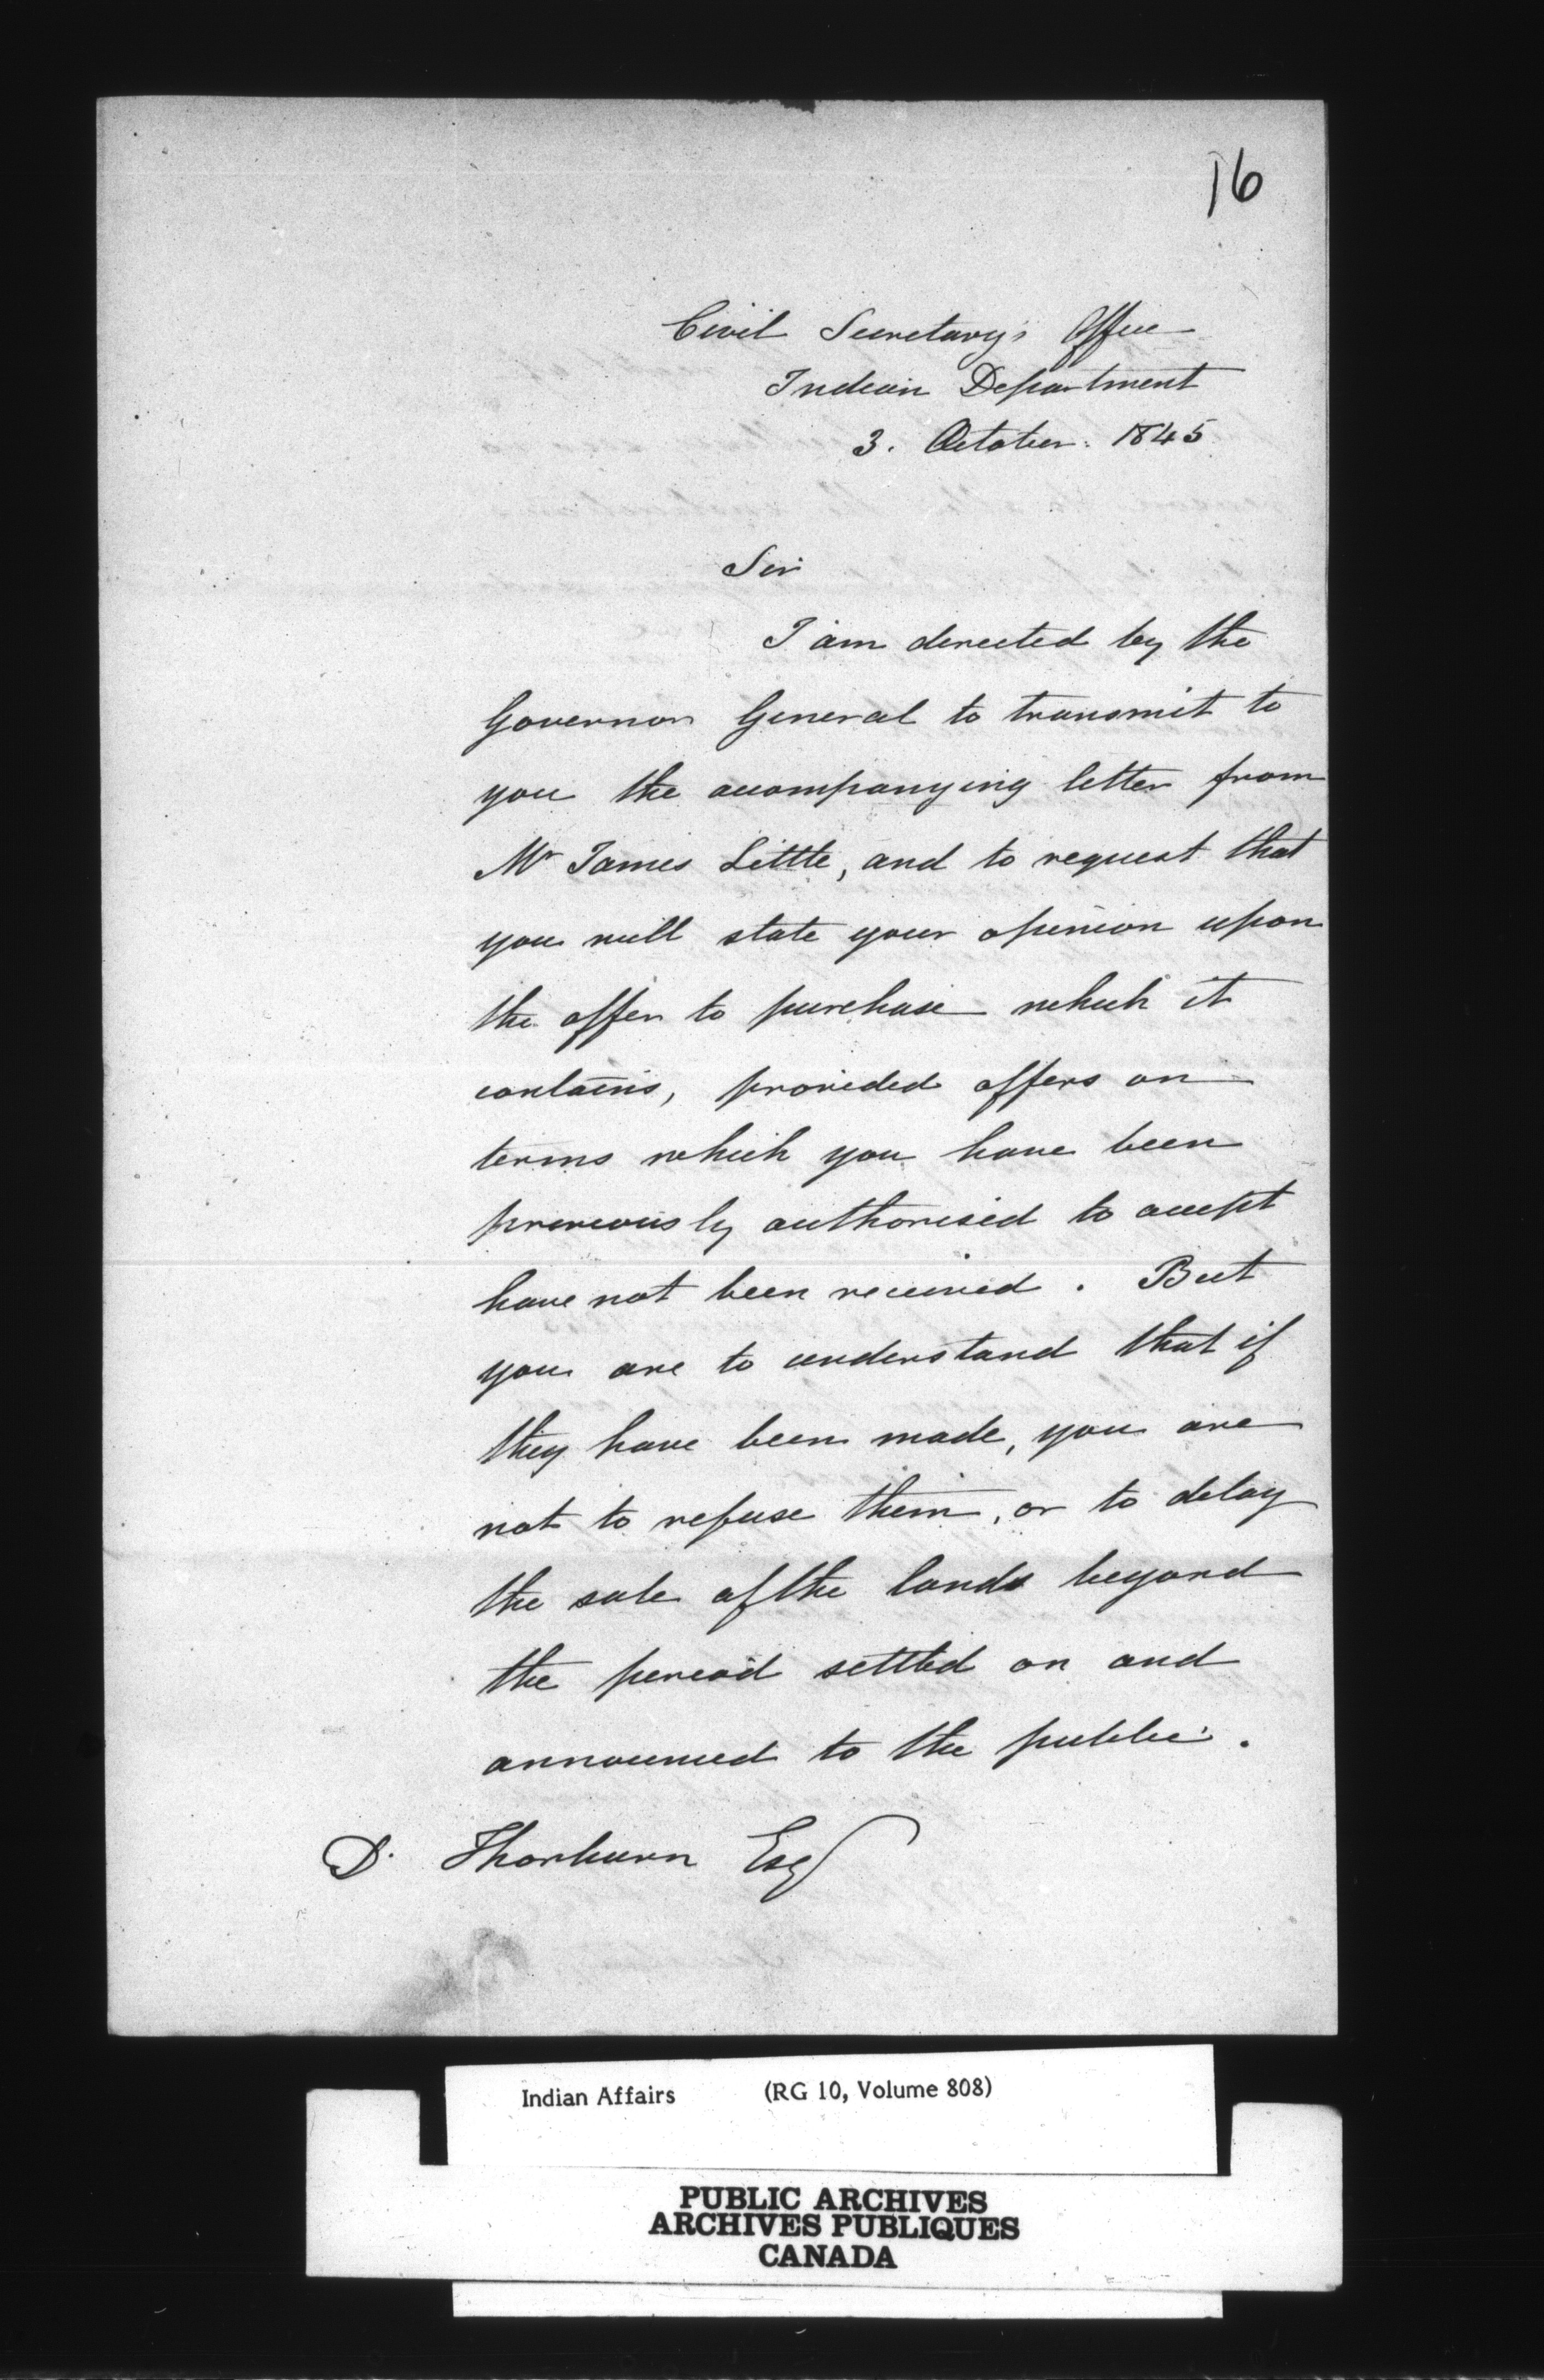 16
Civil Secretary's Office
Indian Department
3. October. 1845
Sir
I am directed by the
Governor General to transmit to
you the accompanying letter from
Mr James Little, and to request that
you will state your opinion upon
the offer to purchase which it
contains, provided offers on
terms which you have been
previously authorised to accept
have not been received. But
you are to understand that if
they have been made, you are
not to refuse them, or to delay
the sale of the lands beyond
the period settled on and
announced to the public.
D. Thorburn Esq
Indian Affairs (RG 10, Volume 808)
PUBLIC ARCHIVES
ARCHIVES PUBLIQUES
CANADA